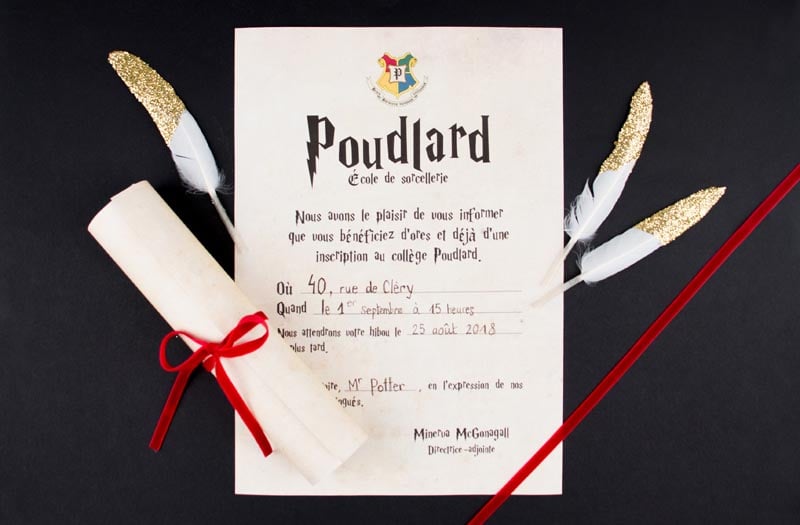 P
Poudlard
École de sorcellerie
Nous avons le plaisir de vous informer
que vous bénéficiez d'ores et déjà d'une
inscription au collège Poudlard.
Où 40, rue de Cléry
Quand le 1er septembre à 15 heures
Nous attendrons votre hibou le 25 août 2018
plus tard.
Mr Potter, en l'expression de nos
Minerva McGonagall
Directrice-adjointe